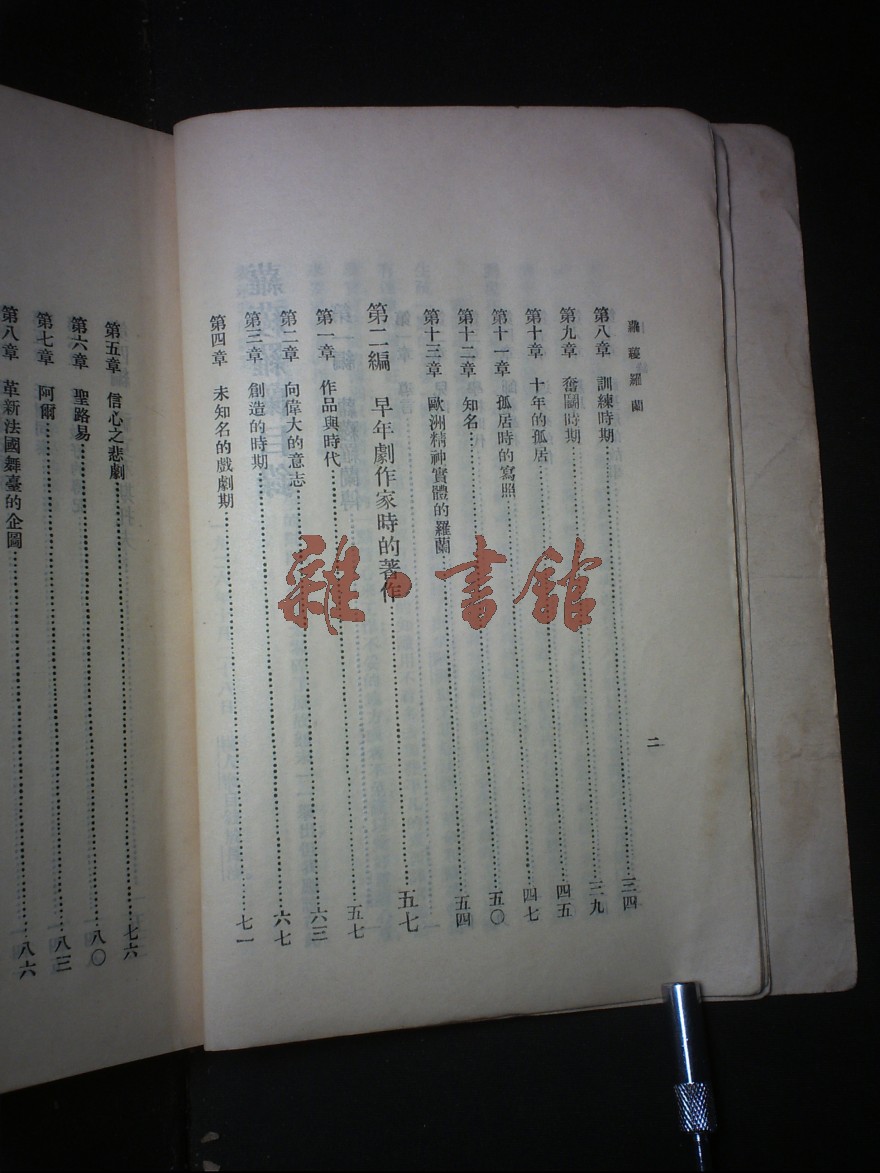 羅曼羅蘭
第八章 訓練時期……三四
第九章 奮鬪時期……三九
第十章 十年的孤居……四五
第十一章 孤居時的寫照……四七
第十二章 知名……五〇
第十三章 歐洲精神實體的羅蘭……五四
第二編 早年劇作家時的著作……五七
第一章 作品與時代……五七
第二章 向偉大的意志……六三
第三章 創造的時期……六七
第四章 未知名的戲劇期……七一
二
第五章 信心之悲劇……七六
第六章 聖路易……八〇
第七章 阿爾……八三
第八章 革新法國舞臺的企圖……八六
雜·書館